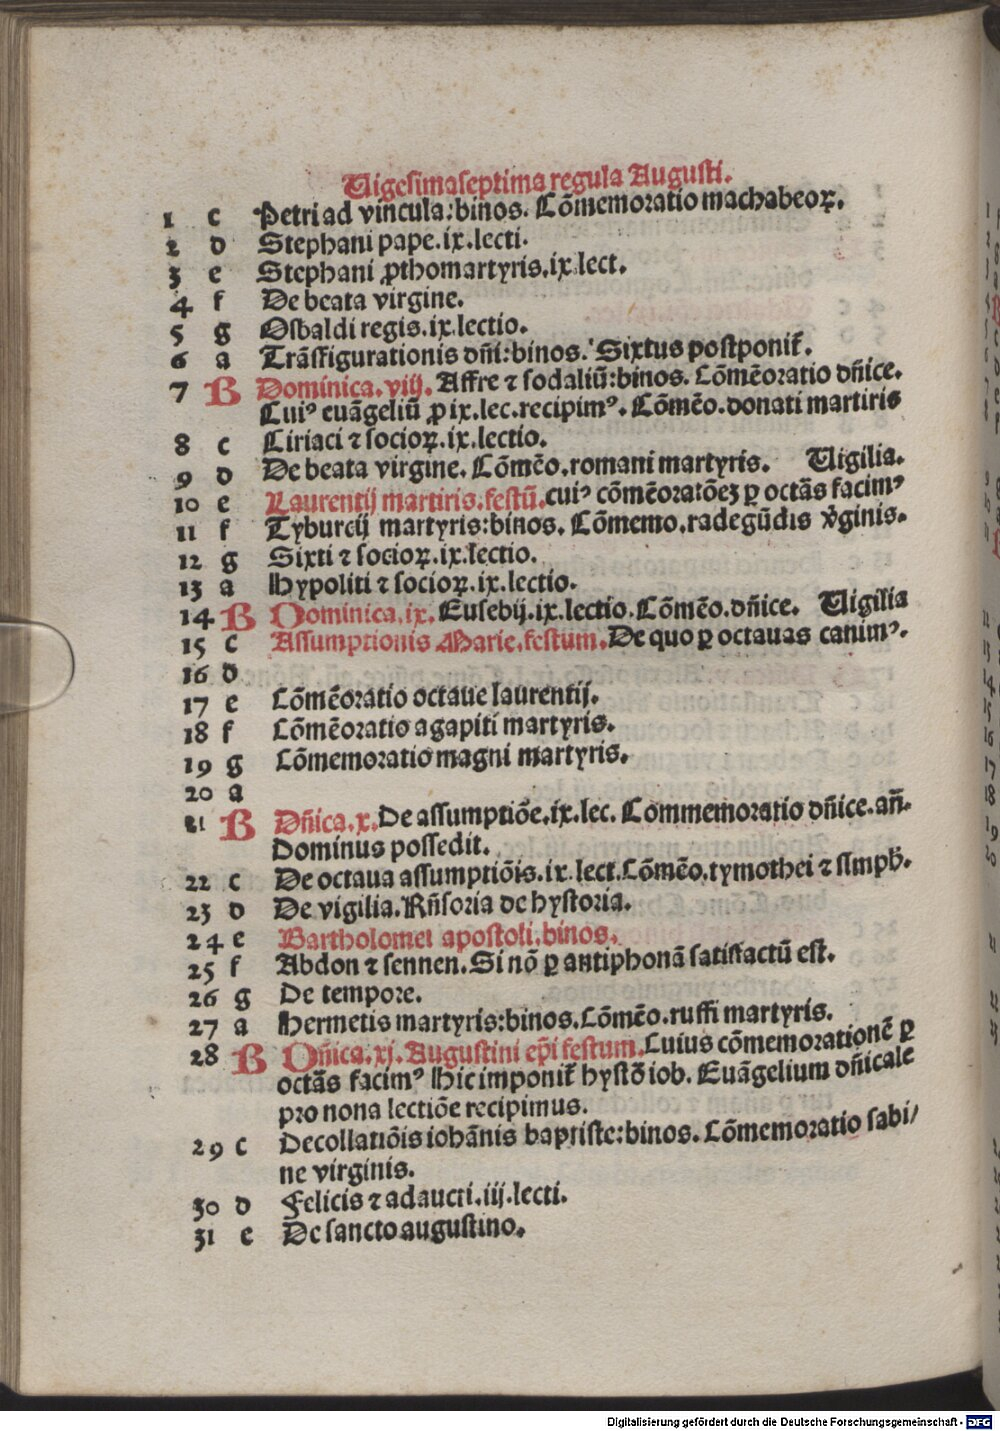 Vigesimaseptima regula Augusti.
1 c Petri ad vincula:binos. Cōmemoratio machabeoꝝ.
2 d Stephani pape.ix.lecti.
3 e Stephani ꝓthomartyris.ix.lect.
4 f De beata virgine.
5 g Osbaldi regis.ix.lectio.
6 a Trāsfigurationis dñi:binos. Sixtus postponit᷑.
7 B Dominica.viij. Affre ⁊ sodaliū:binos. Cōmēoratio dñice.
Cuiꝰ euāgeliū ꝓ ix.lec.recipimꝰ. Cōmēo.donati martiris
8 c Ciriaci ⁊ socioꝝ.ix.lectio.
9 d De beata virgine. Cōmēo.romani martyris. Vigilia.
10 e Laurentij martiris.festū.cuiꝰ cōmēoratōeꝫ ꝑ octās facimꝰ
11 f Tyburcij martyris:binos. Cōmemo.radegūdis v̓ginis.
12 g Sixti ⁊ socioꝝ.ix.lectio.
13 a Hypoliti ⁊ socioꝝ.ix.lectio.
14 B Dominica.ix. Eusebij.ix.lectio. Cōmēo.dñice. Vigilia
15 c Assumptionis Marie.festum. De quo ꝑ octauas canimꝰ.
16 d
17 e Cōmēoratio octaue laurentij.
18 f Cōmēoratio agapiti martyris.
19 g Cōmemoratio magni martyris.
20 a
21 B Dñica.x. De assumptiōe.ix.lec. Commemoratio dñice.añ.
Dominus possedit.
22 c De octaua assumptiōis.ix.lect. Cōmēo.tymothei ⁊ simph̄.
23 d De vigilia. Rñsoria de hystoria.
24 e Bartholomei apostoli.binos.
25 f Abdon ⁊ sennen. Si nō ꝑ antiphonā satisfactū est.
26 g De tempore.
27 a Hermetis martyris:binos. Cōmēo.ruffi martyris.
28 B Dñica.xj. Augustini ep̄i festum. Cuius cōmemorationē ꝑ
octās facimꝰ Hic imponit᷑ hystō iob. Euāgelium dñicale
pro nona lectiōe recipimus.
29 c Decollatiōis iohānis baptiste:binos. Cōmemoratio sabi/
ne virginis.
30 d Felicis ⁊ adaucti.iij.lecti.
31 e De sancto augustino.
Digitalisierung gefördert durch die Deutsche Forschungsgemeinschaft - DFG